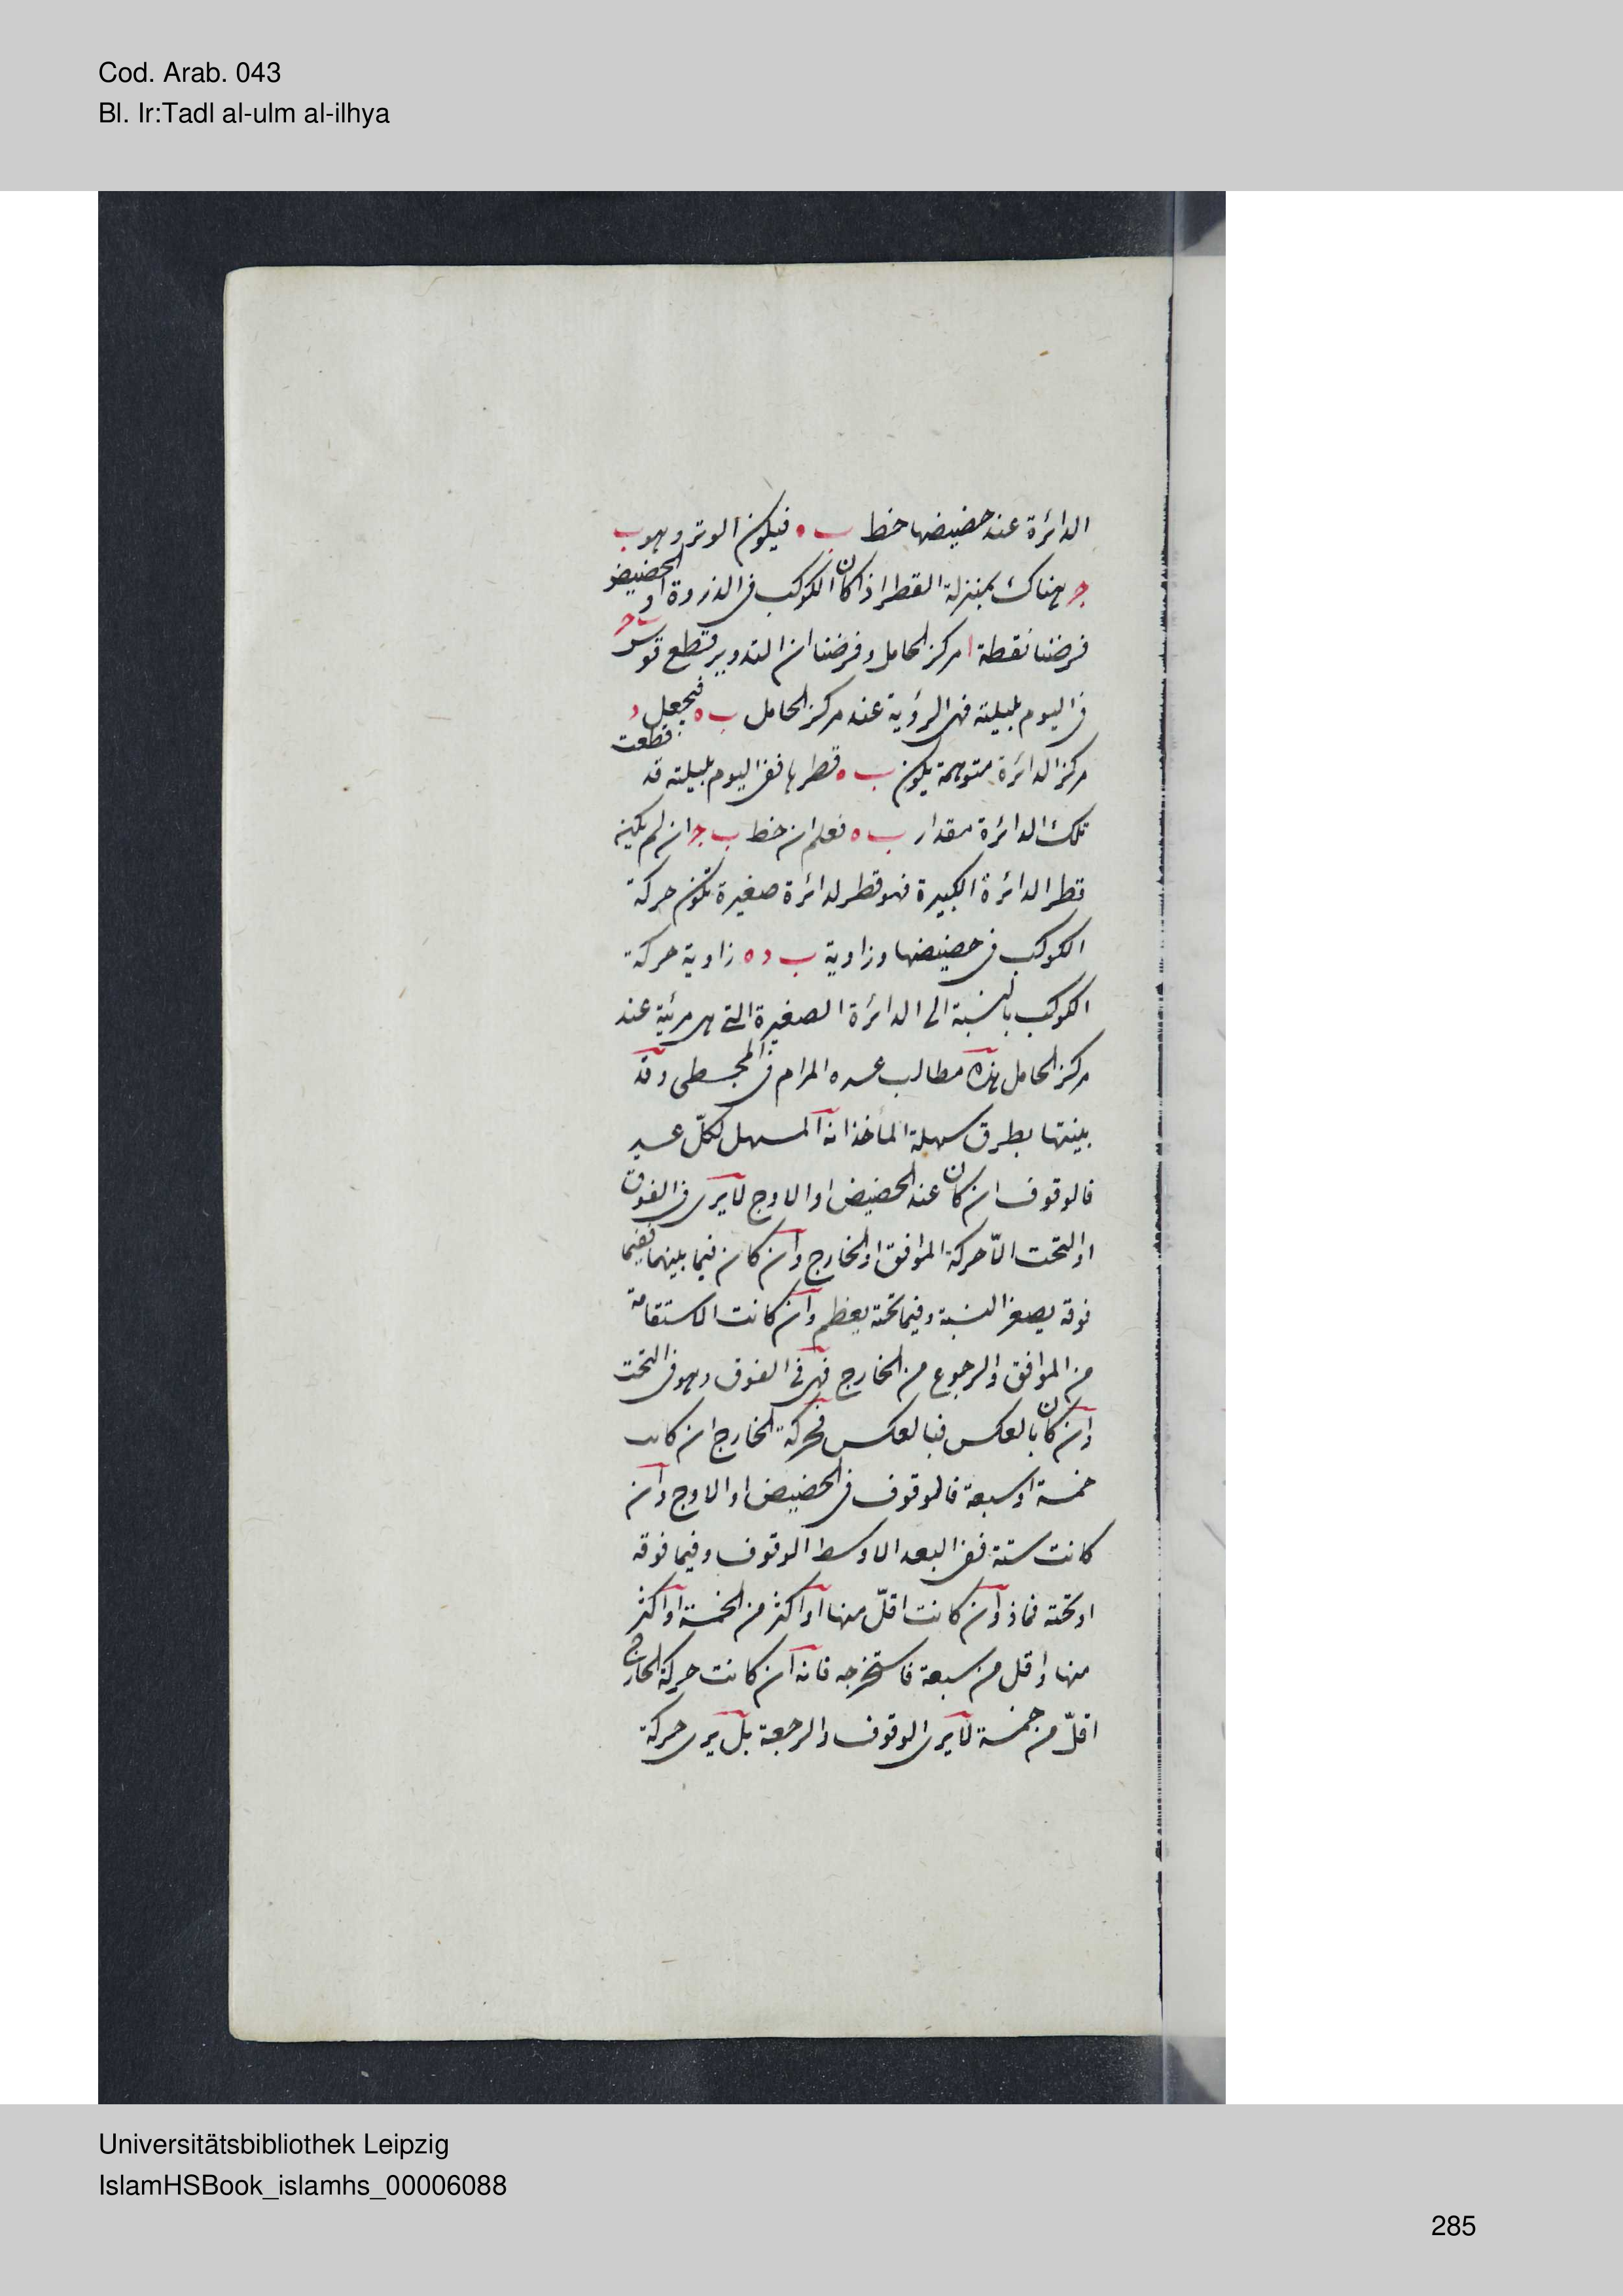 Cod. Arab. 043
Bl. Ir:Tadl al-ulm al-ilhya
الدائرة عند حضيضها خط ب ه فيكون الوتر وهو ب
ج هناك بمنزلة القطر اذا كان الكوكب فى الذروة او الحضيض
فرضنا نقطة ا مركز الحامل وفرضنا ان التدوير قطع قوس ب ج
فى اليوم بليلته فهى الرؤية عند مركز الحامل ب ه فيجعل د
مركز الدائرة متوهمة يكون ب ه قطرها ففى اليوم بليلته قد قطعت
تلك الدائرة مقدار ب ه فعلم ان خط ب ج ان لم يكن
قطر الدائرة الكبيرة فهو قطر لدائرة صغيرة تكون حركة
الكوكب فى حضيضها وزاوية ب د ه زاوية حركة
الكوكب بالنسبة الى الدائرة الصغيرة التى هى مرئية عند
مركز الحامل هذه مطالب المرام فى المجسطى وقد
بينتها بطرق سهلة المأخذ انه المسهل لكلّ عسير
فالوقوف ان كان عند الحضيض او الاوج لا يرى فى الفوق
او التحت الّا حركة الموافق او الخارج وان كان فيما بينهما ففيما
فوقه يصغر النسبة وفيما تحته يعظم وان كانت الاستقامة
من الموافق والرجوع من الخارج فهى فى الفوق وهو فى التحت
وان كان بالعكس فبالعكس فحركة الخارج ان كانت
خمسة او سبعة فالوقوف فى الحضيض او الاوج وان
كانت ستة ففى البعد الاوسط الوقوف وفيما فوقه
او تحته وان كانت اقلّ منها او اكثر من الخمسة او اكثر
منها واقل من سبعة فاستخرجه فانه ان كانت حركة الخارج
اقلّ من خمسة لا يرى الوقوف والرجعة بل يرى حركة
Universitätsbibliothek Leipzig
IslamHSBook_islamhs_00006088
285